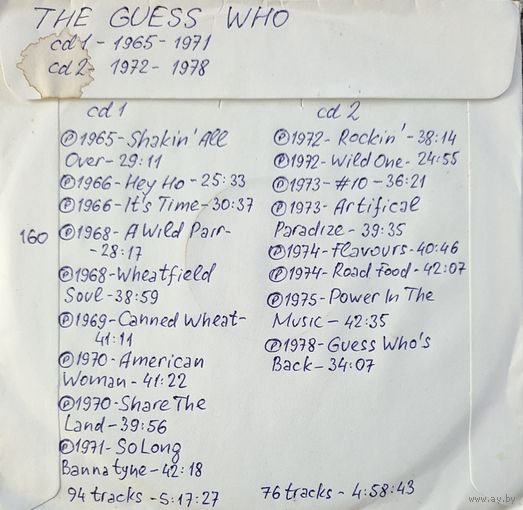 THE GUESS WHO
cd 1 - 1965 - 1971
cd 2 - 1972 - 1978
cd 1
Ⓟ1965-Shakin' All
Over-29:11
Ⓟ1966-Hey Ho-25:33
Ⓟ1966-It's Time-30:37
160
Ⓟ1968-A Wild Pair-
-28:17
Ⓟ1968-Wheatfield
Soul-38:59
Ⓟ1969-Canned Wheat-
41:11
Ⓟ1970-American
Woman-41:22
Ⓟ1970-Share The
Land-39:56
Ⓟ1971-So Long
Bannatyne-42:18
94 tracks-5:17:27
cd 2
Ⓟ1972-Rockin'-38:14
Ⓟ1972-Wild One-24:55
Ⓟ1973-#10-36:21
Ⓟ1973-Artifical
Paradize-39:35
Ⓟ1974-Flavours-40:46
Ⓟ1974-Road Food-42:07
Ⓟ1975-Power In The
Music-42:35
Ⓟ1978-Guess Who's
Back-34:07
76 tracks-4:58:43
www.ay.by